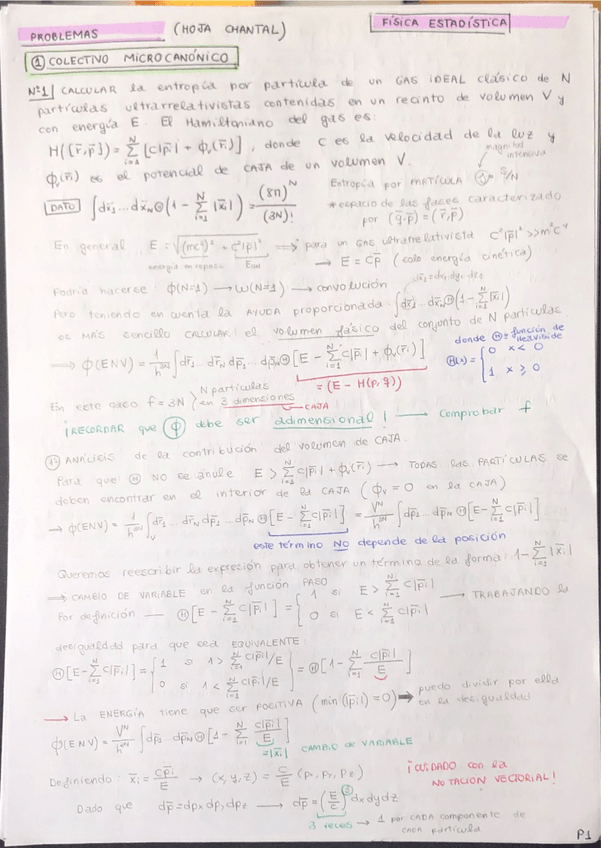 PROBLEMAS (HOJA CHANTAL) FÍSICA ESTADÍSTICA
① COLECTIVO MICROCANÓNICO
Nº1 CALCULAR la entropía por partícula de un GAS IDEAL clásico de N
partículas ultrarrelativistas contenidas en un recinto de volumen V y
con energía E. El Hamiltoniano del gas es:
H({r̄,p̄}) = Σᵢ₌₁ᴺ [c|p̄ᵢ| + ϕᵥ(r̄ᵢ)], donde c es la velocidad de la luz y
ϕᵥ(r̄ᵢ) es el potencial de CAJA de un volumen V.
magnitud intensiva
DATO ∫dx̄₁...dx̄N Θ(1 - Σᵢ₌₁ᴺ |x̄ᵢ|) = (8π)ᴺ/(3N)!
Entropía por PARTÍCULA = S/N
*espacio de las fases caracterizado
por (q̄,p̄) = (r̄,p̄)
En general E = √((mc²)² + c²|p̄|²) ⟹ para un GAS ultrarrelativista c²|p̄|² >> m²c⁴
energía en reposo
→ E = cp̄ (solo energía cinética)
Podría hacerse: ϕ(N=1) → ω(N=1) → convolución
dx̄₁ = dx₁dy₁dz₁
Pero teniendo en cuenta la AYUDA proporcionada: ∫dx̄₁...dx̄N Θ(1 - Σᵢ₌₁ᴺ|x̄ᵢ|)
es MÁS sencillo CALCULAR el volumen fásico del conjunto de N partículas
donde Θ = función de Heaviside
⟹ ϕ(ENV) = 1/h³ᴺ ∫dr̄₁...dr̄N dp̄₁...dp̄N Θ[E - Σᵢ₌₁ᴺ c|p̄ᵢ| + ϕᵥ(r̄ᵢ)]
Θ(x) = { 0 x < 0
1 x ≥ 0
= (E - H(p,q))
En este caso f = 3N } N partículas en 3 dimensiones
CAJA
¡RECORDAR que ϕ debe ser adimensional! → comprobar f
ANÁLISIS de la contribución del volumen de CAJA.
Para que Θ NO se anule E > Σᵢ₌₁ᴺ c|p̄ᵢ| + ϕᵥ(r̄ᵢ) → TODAS las PARTÍCULAS se
deben encontrar en el interior de la CAJA (ϕᵥ = 0 en la CAJA)
→ ϕ(ENV) = 1/h³ᴺ ∫ᵥ dr̄₁...dr̄N dp̄₁...dp̄N Θ[E - Σᵢ₌₁ᴺ c|p̄ᵢ|] = Vᴺ/h³ᴺ ∫dp̄₁...dp̄N Θ[E - Σᵢ₌₁ᴺ c|p̄ᵢ|]
este término NO depende de la posición
Queremos reescribir la expresión para obtener un término de la forma: 1 - Σᵢ₌₁ᴺ |x̄ᵢ|
⟹ CAMBIO DE VARIABLE en la función PASO
Por definición — Θ[E - Σᵢ₌₁ᴺ c|p̄ᵢ|] = { 1 si E > Σᵢ₌₁ᴺ c|p̄ᵢ|
0 si E < Σᵢ₌₁ᴺ c|p̄ᵢ| → TRABAJANDO la
desigualdad para que sea EQUIVALENTE:
Θ[E - Σᵢ₌₁ᴺ c|p̄ᵢ|] = { 1 si 1 > Σᵢ₌₁ᴺ c|p̄ᵢ|/E
0 si 1 < Σᵢ₌₁ᴺ c|p̄ᵢ|/E } = Θ[1 - Σᵢ₌₁ᴺ c|p̄ᵢ|/E]
→ La ENERGÍA tiene que ser POSITIVA (min(|p̄ᵢ|) = 0) ➡ puedo dividir por ella
en la desigualdad
ϕ(ENV) = Vᴺ/h³ᴺ ∫dp̄₁...dp̄N Θ[1 - Σᵢ₌₁ᴺ c|p̄ᵢ|/E]
= |x̄ᵢ| CAMBIO DE VARIABLE
Definiendo: x̄ᵢ = cp̄ᵢ/E → (x,y,z) = c/E (px, py, pz)
¡CUIDADO con la
NOTACIÓN VECTORIAL!
Dado que dp̄ = dpx dpy dpz → dp̄ = (E/c)³ dxdydz
3 veces → 1 por CADA componente de
CADA partícula
P1